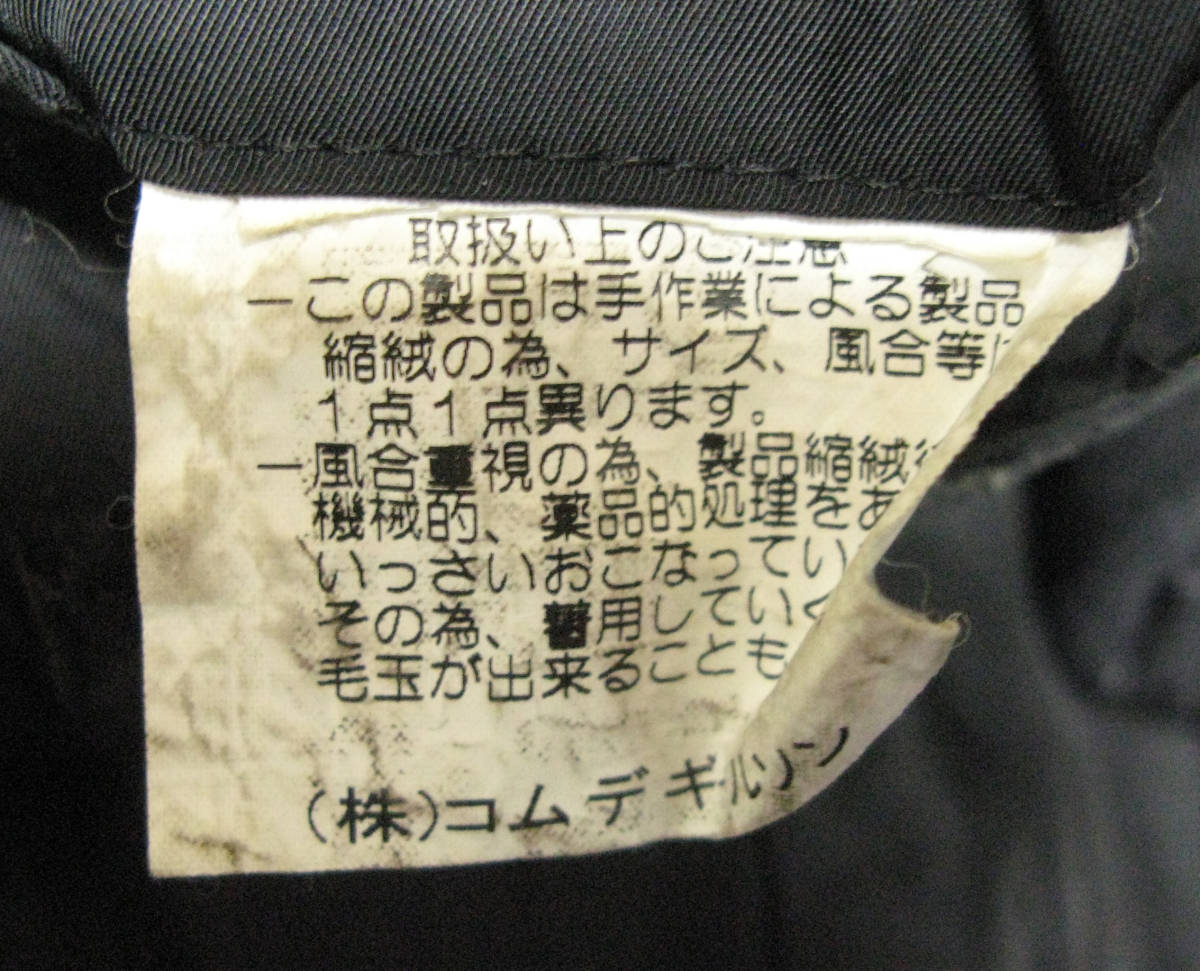 取扱い上のご注意
－この製品は手作業による製品
縮絨の為、サイズ、風合等に
1点1点異ります。
－風合重視の為、製品縮絨後
機械的、薬品的処理をあ
いっさいおこなってい
その為、着用していく
毛玉が出来ることも
(株)コムデギャルソン